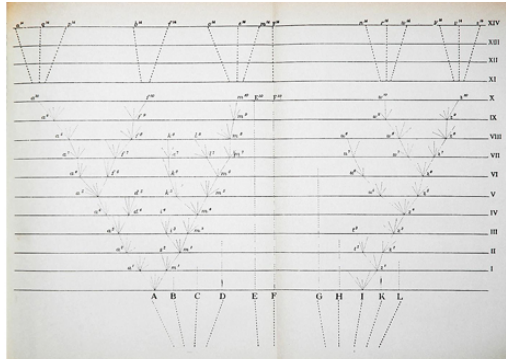 a¹⁴ q¹⁴ p¹⁴ b¹⁴ f¹⁴ o¹⁴ e¹⁴ m¹⁴ F¹⁴ n¹⁴ r¹⁴ w¹⁴ y¹⁴ v¹⁴ z¹⁴ XIV
XIII
XII
XI
a¹⁰ f¹⁰ m¹⁰ E¹⁰ F¹⁰ w¹⁰ z¹⁰ X
a⁹ f⁹ m⁹ w⁹ z⁹ IX
a⁸ f⁸ k⁸ l⁸ m⁸ u⁸ w⁸ z⁸ VIII
a⁷ f⁷ k⁷ l⁷ m⁷ u⁷ w⁷ z⁷ VII
a⁶ f⁶ k⁶ m⁶ u⁶ z⁶ VI
a⁵ d⁵ k⁵ m⁵ u⁵ z⁵ V
a⁴ d⁴ m⁴ z⁴ IV
a³ i³ m³ t³ z³ III
a² s² m² t² z² II
a¹ m¹ z¹ I
A B C D E F G H I K L